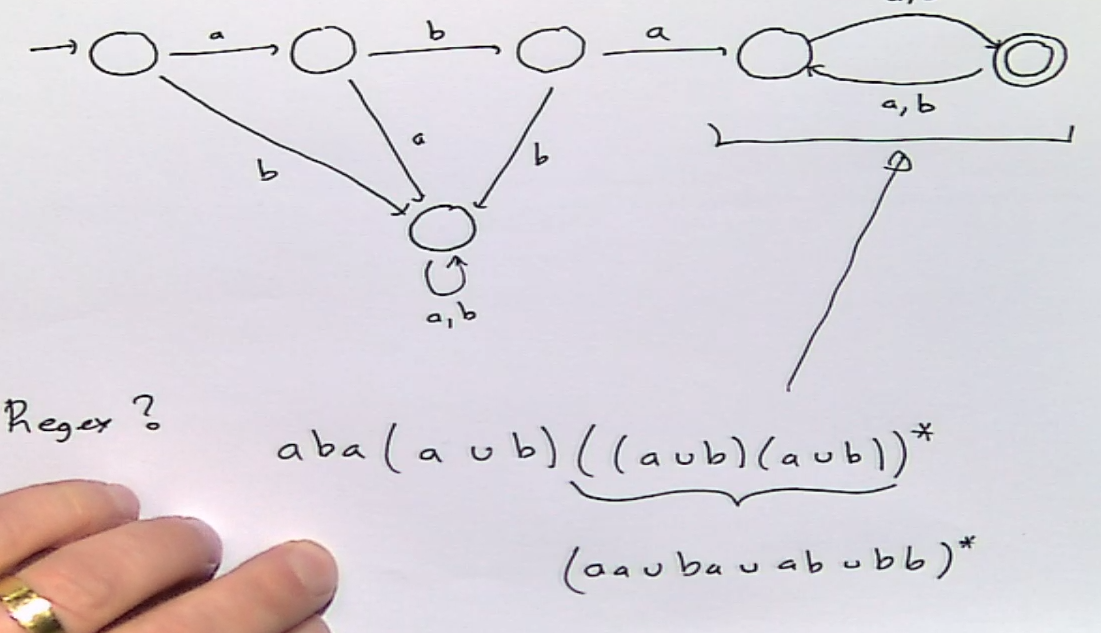 a b a
a, b
b a b
a, b
Regex ?
aba(a ∪ b)((a∪b)(a∪b))*
(aa∪ba∪ab∪bb)*